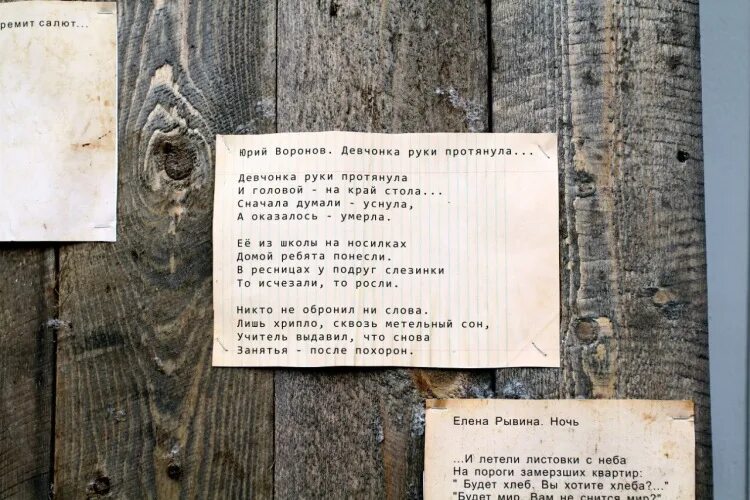 ремит салют...
Юрий Воронов. Девчонка руки протянула...
Девчонка руки протянула
И головой - на край стола...
Сначала думали - уснула,
А оказалось - умерла.
Её из школы на носилках
Домой ребята понесли.
В ресницах у подруг слезинки
То исчезали, то росли.
Никто не обронил ни слова.
Лишь хрипло, сквозь метельный сон,
Учитель выдавил, что снова
Занятья - после похорон.
Елена Рывина. Ночь
...И летели листовки с неба
На пороги замерзших квартир:
" Будет хлеб. Вы хотите хлеба?..."
"Будет мир. Вам не снится мир?"